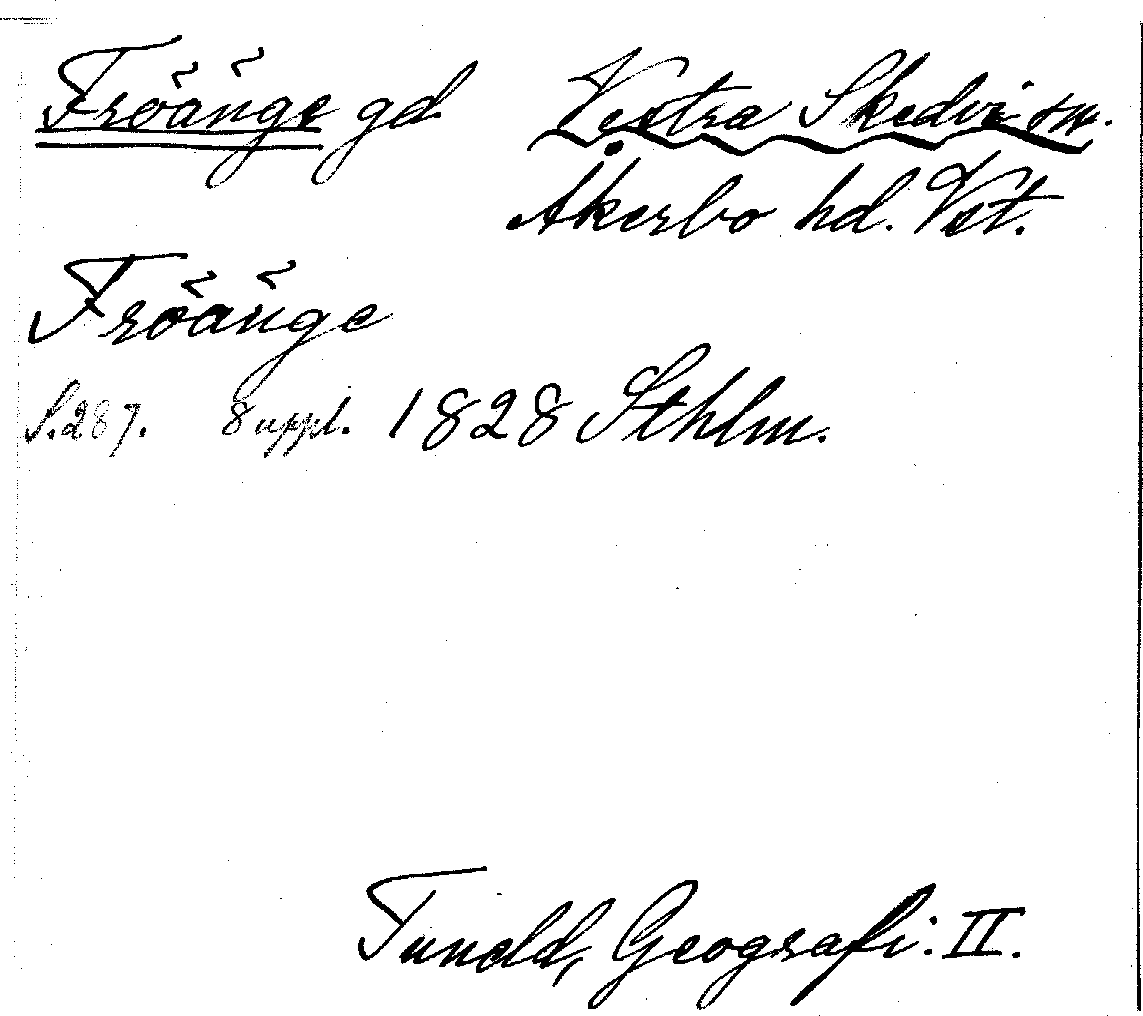 Fröänge gd Vestra Skedvi sn.
Åkerbo hd. Vst.
Fröänge
S. 287. 8 uppl. 1828 Sthlm.
Tuneld, Geografi. II.